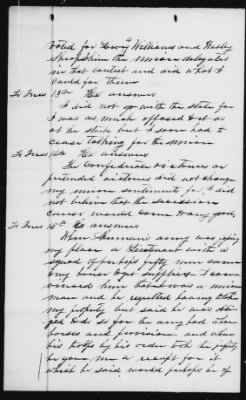 voted for Lewis Williams and Wesley
the union delegates
in that contest and did what I
could for them
To Inter 13th He answers
I did not go with the state for
I was as much opposed to it as
at the start but I soon had to
cease talking for the Union
To Inter 14th He answers
The Confederate victories or
pretended victories did not change
my union sentiments for I did
not believe that the secession
cause would come to any good,
To Inter 15th He answers
When army was
my place a Lieutenant with a
squad of perhaps fifty men came
on my to get supplies. I
him that I was a union
man and he regretted having to take
my property but said he was
to do so for the army had to have
horses and provision and when
his troops by his order took the property
he gave me a receipt for it
which he said would perhaps be of